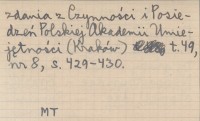 zdania z Czynności i Posie-
dzeń Polskiej Akademii Umie-
jętności (Kraków) t. 49,
nr 8, s. 429-430.
MT